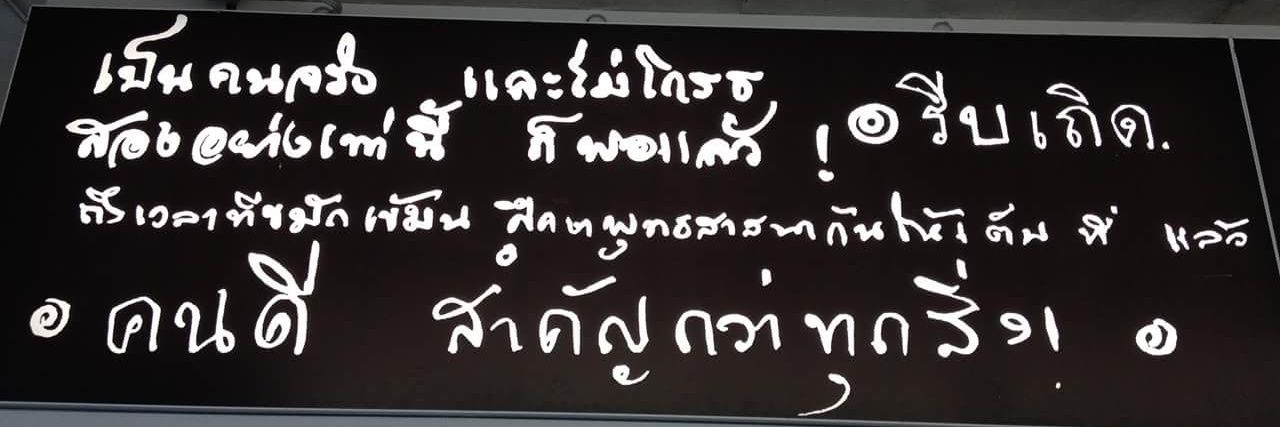 เป็นคนจริง และไม่โกรธ
สองอย่างเท่านี้ ก็พอแล้ว ! ๏ รีบเถิด.
ถึงเวลาที่ขมักเขม้น ศึกษาพุทธสาสนากันให้เต็มที่ แล้ว
๏ คนดี สำคัญกว่าทุกสิ่ง! ๏